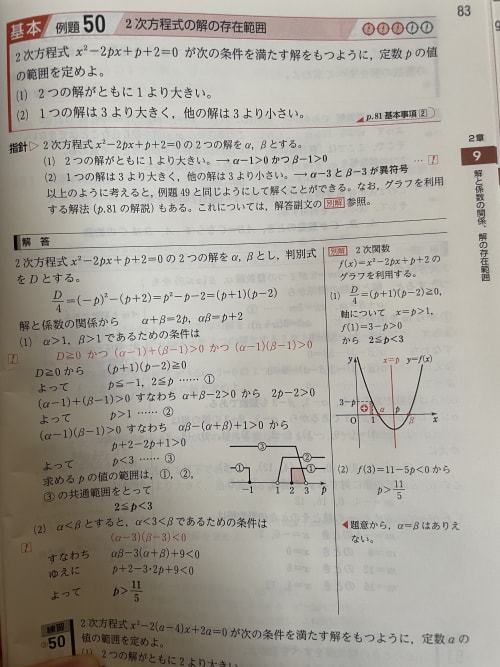 83
基本 例題 50 2次方程式の解の存在範囲
2次方程式 x²−2px+p+2=0 が次の条件を満たす解をもつように，定数 p の値
の範囲を定めよ。
(1) 2つの解がともに1より大きい。
(2) 1つの解は3より大きく，他の解は3より小さい。
p.81 基本事項 2
指針▷ 2次方程式 x²−2px+p+2=0 の2つの解を α，β とする。
(1) 2つの解がともに1より大きい。→ α−1>0 かつ β−1>0
(2) 1つの解は3より大きく，他の解は3より小さい。→ α−3 と β−3 が異符号
以上のように考えると，例題49と同じようにして解くことができる。なお，グラフを利用
する解法 (p.81 の解説) もある。これについては，解答副文の 別解 参照。
2章
9
解と係数の関係，解の存在範囲
解答
2次方程式 x²−2px+p+2=0 の2つの解を α，β とし，判別式
を D とする。
D/4=(−p)²−(p+2)=p²−p−2=(p+1)(p−2)
解と係数の関係から α+β=2p，αβ=p+2
(1) α>1，β>1 であるための条件は
D≧0 かつ (α−1)+(β−1)>0 かつ (α−1)(β−1)>0
D≧0 から (p+1)(p−2)≧0
よって p≦−1，2≦p …… ①
(α−1)+(β−1)>0 すなわち α+β−2>0 から 2p−2>0
よって p>1 …… ②
(α−1)(β−1)>0 すなわち αβ−(α+β)+1>0 から
p+2−2p+1>0
よって p<3 …… ③
求める p の値の範囲は，①，②，
③ の共通範囲をとって
2≦p<3
③
②
① ①
−1 1 2 3 p
(2) α<β とすると，α<3<β であるための条件は
(α−3)(β−3)<0
すなわち αβ−3(α+β)+9<0
ゆえに p+2−3・2p+9<0
よって p>11/5
別解 2次関数
f(x)=x²−2px+p+2 の
グラフを利用する。
(1) D/4=(p+1)(p−2)≧0，
軸について x=p>1，
f(1)=3−p>0
から 2≦p<3
y x=p y=f(x)
3−p
+
O 1 α p β x
(2) f(3)=11−5p<0 から
p>11/5
◀題意から，α=β はありえ
ない。
練習 50
2次方程式 x²−2(a−4)x+2a=0 が次の条件を満たす解をもつように，定数 a の
値の範囲を定めよ。
(1) 2つの解がともに2より